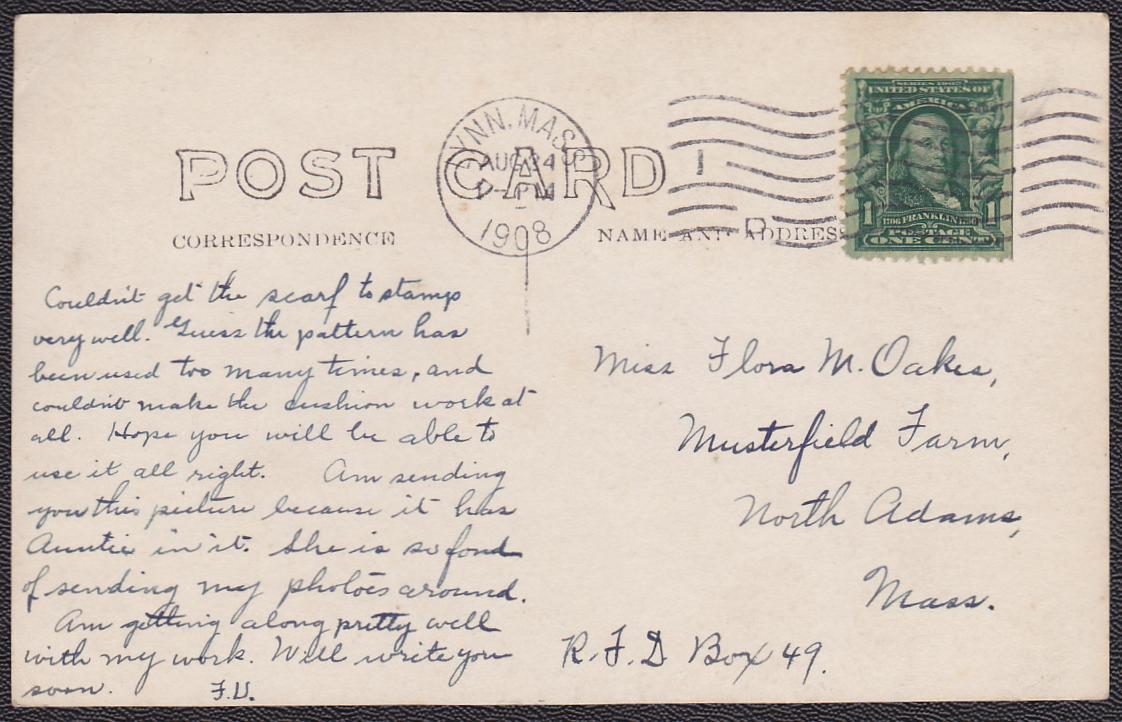 LYNN, MASS
AUG 24
7-PM
1908
SERIES 1902
UNITED STATES OF
AMERICA
1 1
FRANKLIN
POSTAGE
ONE CENT
POST CARD
CORRESPONDENCE
NAME AND ADDRESS
Couldn't get the scarf to stamp
very well. Guess the pattern has
been used too many times, and
couldn't make the cushion work at
all. Hope you will be able to
use it all right. Am sending
you this picture because it has
Auntie in it. She is so fond
of sending my photoes around.
Am getting along pretty well
with my work. Will write you
soon. F.U.
Miss Flora M. Oakes,
Musterfield Farm,
North Adams,
Mass.
R.F.D Box 49.